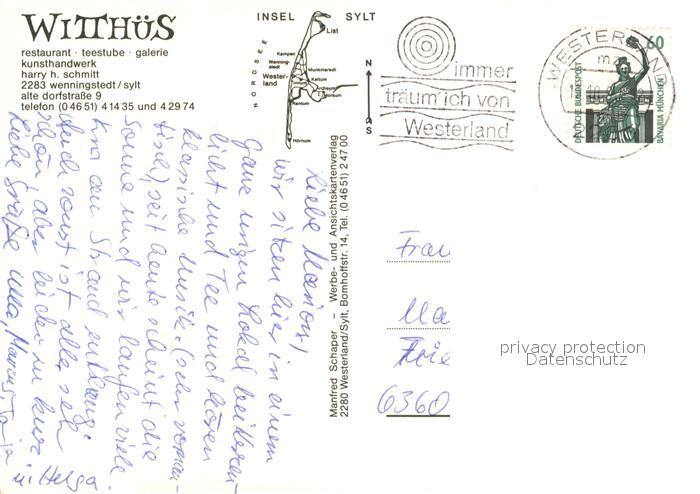 WITTHÜS
restaurant · teestube · galerie
kunsthandwerk
harry h. schmitt
2283 wenningstedt/sylt
alte dorfstraße 9
telefon (0 46 51) 4 14 35 und 4 29 74
INSEL SYLT
NORDSEE
List
Kampen
Wenning-
stedt
Wester-
land
Munkmarsch
Keitum
Archsum
Morsum
Rantum
Hörnum
N
S
immer
träum' ich von
Westerland
WESTERLAND
60
DEUTSCHE BUNDESPOST
BAVARIA MÜNCHEN
Manfred Schaper – Werbe- und Ansichtskartenverlag
2280 Westerland/Sylt, Bomhoffstr. 14, Tel. (0 46 51) 2 47 00
Liebe Marion!
wir sitzen hier in einem
ganz urigen Lokal bei Kerzen-
licht und Tee und hören
klassische Musik (oder roman-
tische), seit heute scheint die
Sonne und wir laufen viele
km am Strand entlang.
Auch sonst ist alles sehr
schön, aber leider zu kurz
Liebe Grüße Ulla,
Helga
Frau
Ma
6360
privacy protection
Datenschutz